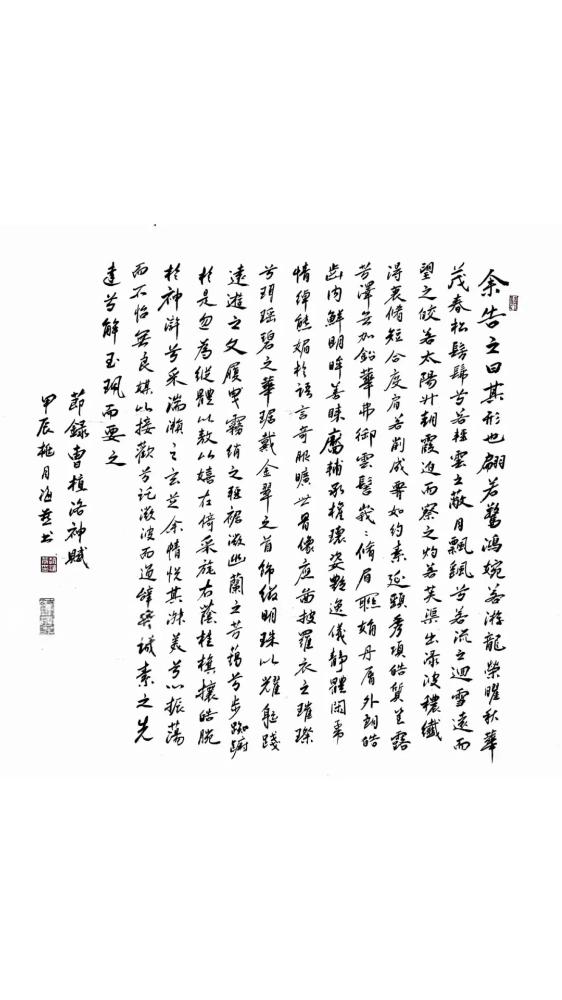 余告之曰其形也翩若驚鴻婉若游龍榮曜秋華
茂春松髣髴兮若輕雲之蔽月飄颻兮若流之迴雪遠而
望之皎若太陽升朝霞迫而察之灼若芙蕖出淥波穠纖
得衷脩短合度肩若削成要如約素延頸秀項皓質呈露
芳澤無加鉛華弗御雲髻峩峩脩眉聯娟丹脣外朗皓
齒內鮮明眸善睞靨輔承權瓌姿艷逸儀靜體閑柔
情綽態媚於語言奇服曠世骨像應圖披羅衣之璀璨
兮珥瑤碧之華琚戴金翠之首飾綴明珠以耀軀踐
遠遊之文履曳霧綃之輕裾微幽蘭之芳藹兮步踟躕
於是忽焉縱體以遨以嬉左倚采旄右蔭桂旗攘皓腕
於神滸兮采湍瀨之玄芝余情悅其淑美兮心振蕩
而不怡無良媒以接歡兮託微波而通辭願誠素之先
達兮解玉珮而要之
節錄曹植洛神賦
甲辰桃月海書